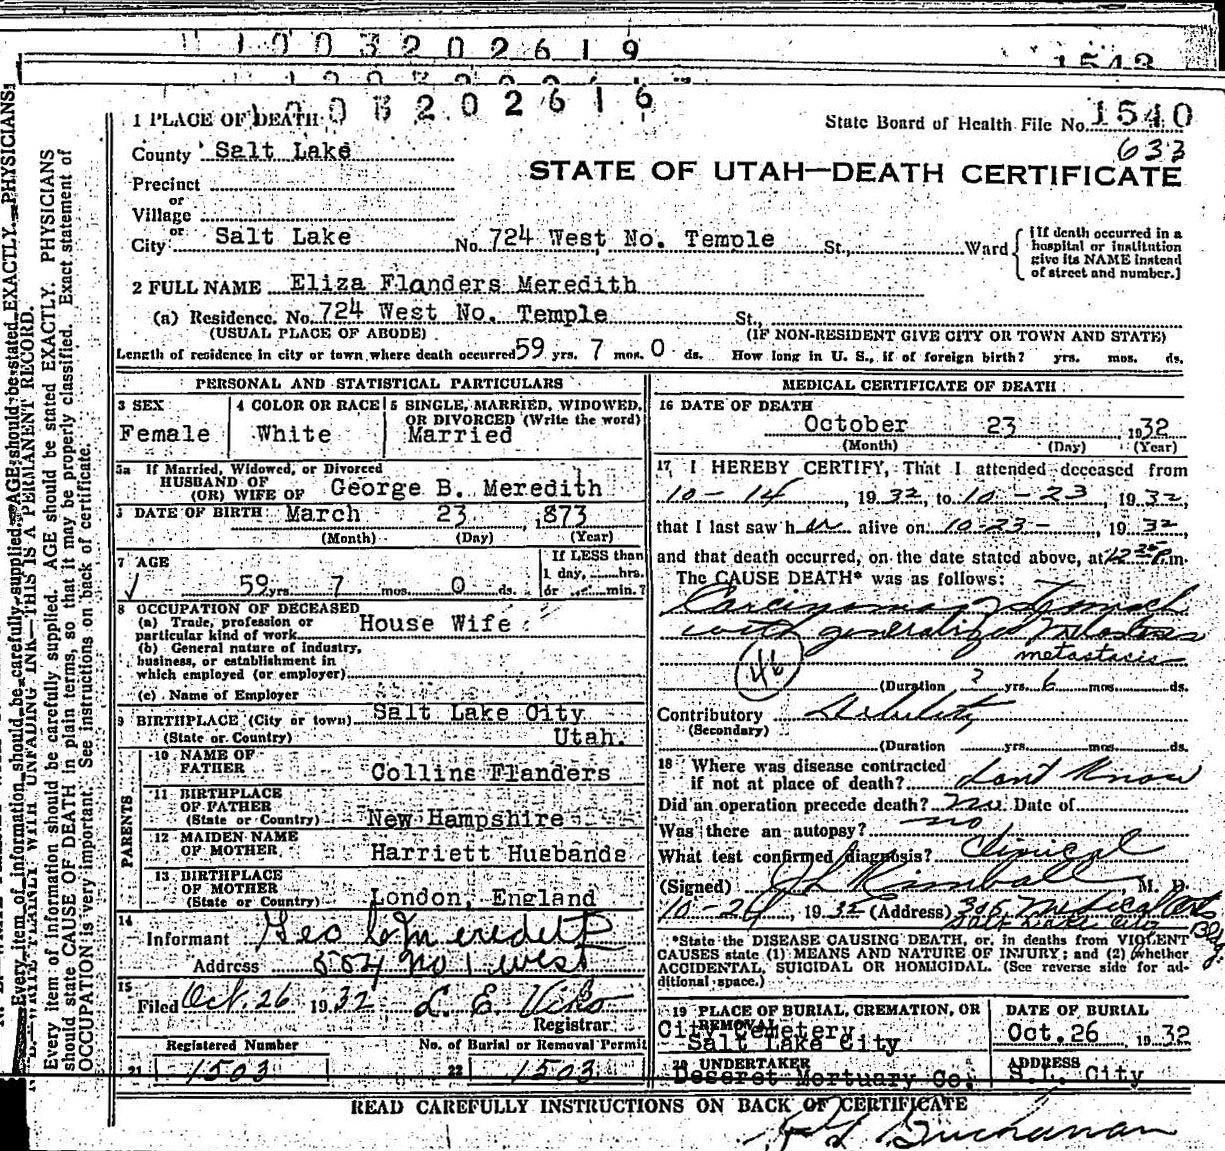 1003202619
1543
1003202616
1 PLACE OF DEATH
State Board of Health File No. 1540
County Salt Lake
633
STATE OF UTAH—DEATH CERTIFICATE
Precinct
or
Village
or
City Salt Lake No. 724 West No. Temple St., Ward
(If death occurred in a
hospital or institution
give its NAME instead
of street and number.)
2 FULL NAME Eliza Flanders Meredith
(a) Residence. No. 724 West No. Temple St.
(USUAL PLACE OF ABODE) (IF NON-RESIDENT GIVE CITY OR TOWN AND STATE)
Length of residence in city or town where death occurred 59 yrs. 7 mos. 0 ds. How long in U. S., if of foreign birth? yrs. mos. ds.
PERSONAL AND STATISTICAL PARTICULARS
3 SEX
Female
4 COLOR OR RACE
White
5 SINGLE, MARRIED, WIDOWED,
OR DIVORCED (Write the word)
Married
5a If Married, Widowed, or Divorced
HUSBAND OF
(OR) WIFE OF George B. Meredith
DATE OF BIRTH March 23 1873
(Month) (Day) (Year)
7 AGE
59 yrs. 7 mos. 0 ds.
If LESS than
1 day, hrs.
or min.?
8 OCCUPATION OF DECEASED
(a) Trade, profession or
particular kind of work House Wife
(b) General nature of industry,
business, or establishment in
which employed (or employer)
(c) Name of Employer
9 BIRTHPLACE (City or town) Salt Lake City
(State or Country) Utah.
PARENTS
10 NAME OF
FATHER Collins Flanders
11 BIRTHPLACE
OF FATHER
(State or Country) New Hampshire
12 MAIDEN NAME
OF MOTHER Harriett Husbands
13 BIRTHPLACE
OF MOTHER
(State or Country) London, England
14
Informant Geo B Meredith
Address 554 No 1 West
15
Filed Oct. 26 1932 L. E. Viko
Registrar
Registered Number
21 1503
No. of Burial or Removal Permit
22 1503
MEDICAL CERTIFICATE OF DEATH
16 DATE OF DEATH
October 23 1932
(Month) (Day) (Year)
17 I HEREBY CERTIFY, That I attended deceased from
10-14, 1932, to 10-23, 1932,
that I last saw her alive on 10-23-, 1932
and that death occurred, on the date stated above, at P.m.
The CAUSE DEATH* was as follows:
Carcinoma of Stomach
with generalized Metastases
metastasis
46
(Duration ? yrs. 6 mos. ds.
Contributory Debility
(Secondary)
(Duration yrs. mos. ds.
18 Where was disease contracted
if not at place of death? dont know
Did an operation precede death? no Date of
Was there an autopsy? no
What test confirmed diagnosis? Clinical
(Signed) Kimball, M. D.
10-24, 1932 (Address) 305 Medical Arts Bldg.
Salt Lake City
*State the DISEASE CAUSING DEATH, or, in deaths from VIOLENT
CAUSES state (1) MEANS AND NATURE OF INJURY; and (2) whether
ACCIDENTAL, SUICIDAL OR HOMICIDAL. (See reverse side for ad-
ditional space.)
19 PLACE OF BURIAL, CREMATION, OR
REMOVAL
City Cemetery
Salt Lake City
DATE OF BURIAL
Oct.26 1932
20 UNDERTAKER
Deseret Mortuary Co.
ADDRESS
S.L. City
READ CAREFULLY INSTRUCTIONS ON BACK OF CERTIFICATE
Buchanan
Every item of information should be carefully supplied. AGE should be stated EXACTLY. PHYSICIANS
WRITE PLAINLY WITH UNFADING INK—THIS IS A PERMANENT RECORD.
Every item of information should be carefully supplied. AGE should be stated EXACTLY. PHYSICIANS
should state CAUSE OF DEATH in plain terms, so that it may be properly classified. Exact statement of
OCCUPATION is very important. See instructions on back of certificate.